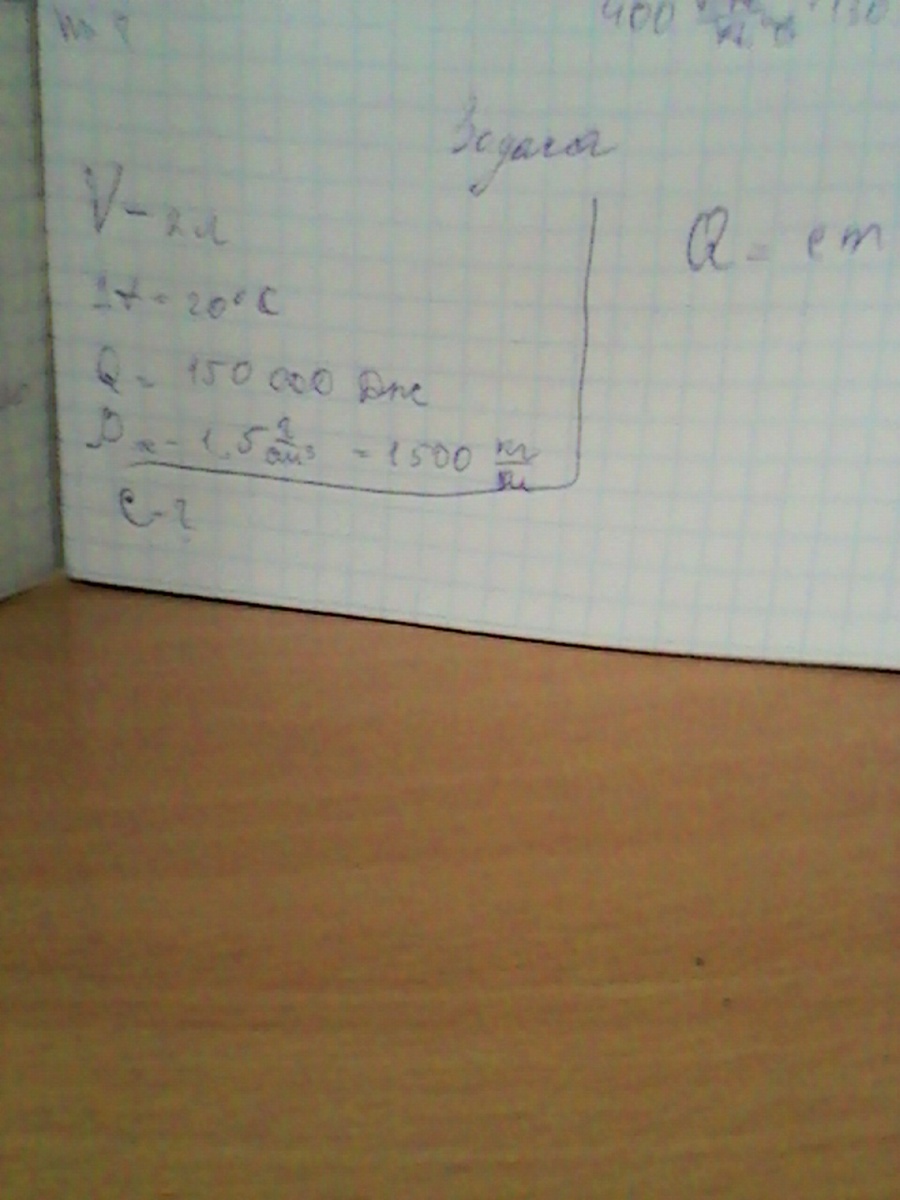 400 130
Задача
V - 2л
Δt = 20°C
Q = 150 000 Дж
ρж - 1,5 г/см³ = 1500 кг/м
C - ?
Q = cm